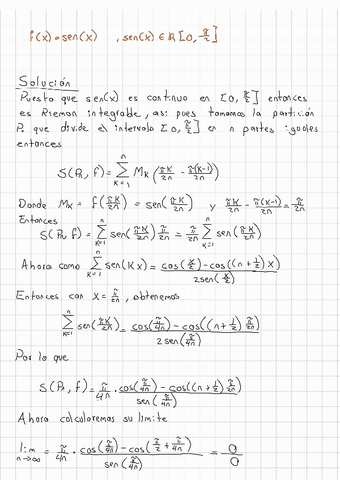 f(x)=sen(x) , sen(x) ∈ R[0, π/2]
Solución
Puesto que sen(x) es continuo en [0, π/2] entonces
es Rieman integrable, asi pues tomamos la partición
Pn que divide el intervalo [0, π/2] en n partes iguales
entonces
S(Pn, f) = ∑_{K=1}^{n} MK (πK/2n - π(K-1)/2n)
Donde MK = f(πK/2n) = sen(πK/2n) y πK/2n - π(K-1)/2n = π/2n
Entonces
S(Pn, f) = ∑_{K=1}^{n} sen(πK/2n) π/2n = π/2n ∑_{K=1}^{n} sen(πK/2n)
Ahora como ∑_{K=1}^{n} sen(Kx) = (cos(x/2) - cos((n + 1/2)x)) / 2sen(x/2)
Entonces con x = π/2n, obtenemos
∑_{K=1}^{n} sen(πK/2n) = (cos(π/4n) - cos((n + 1/2) π/2n)) / 2sen(π/4n)
Por lo que
S(Pn, f) = π/4n · (cos(π/4n) - cos((n + 1/2) π/2n)) / sen(π/4n)
Ahora calcularemos su limite
lim n→∞ π/4n · (cos(π/4n) - cos(π/2 + π/4n)) / sen(π/4n) = 0/0